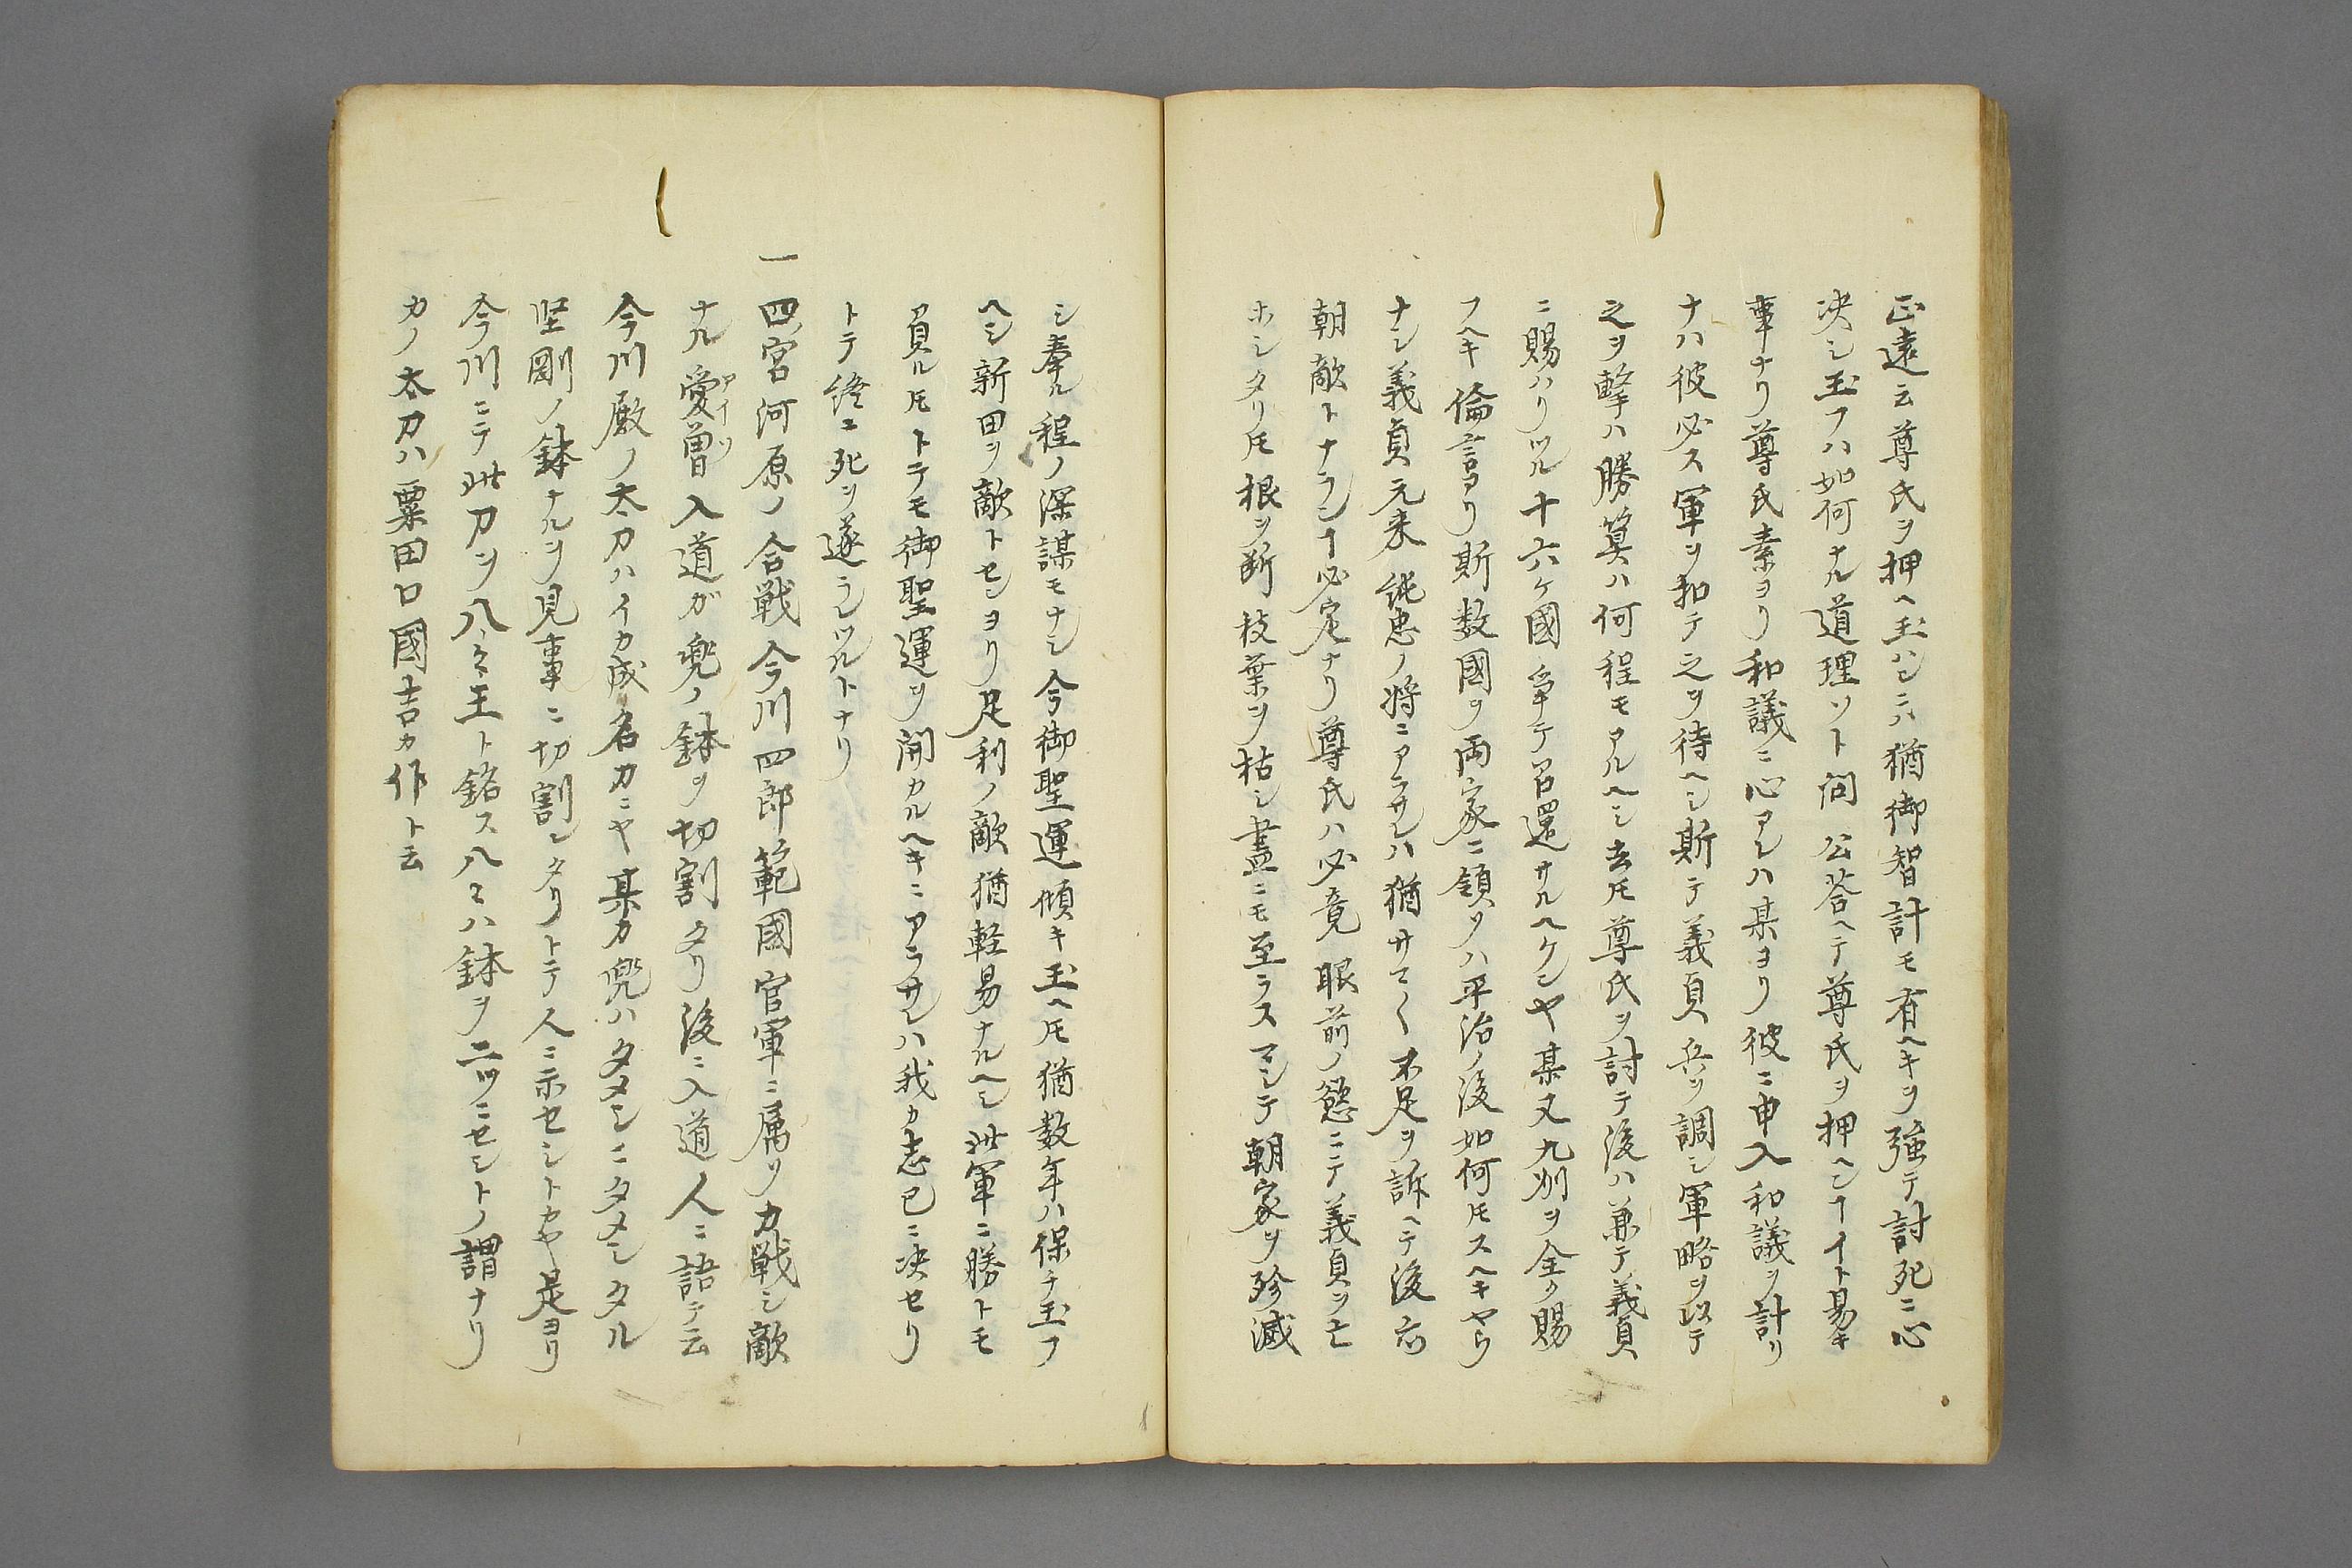 正遠云尊氏ヲ押ヘ玉ハンニハ猶御智計モ有ヘキヲ強テ討死ニ心
决シ玉フハ如何ナル道理ソト問公荅ヘテ尊氏ヲ押ヘンヿイト易キ
事ナリ尊氏素ヨリ和議ニ心アレハ某ヨリ彼ニ申入和議ヲ計リ
ナハ彼必ス軍ヲ和テ之ヲ待ヘシ斯テ義貞兵ヲ調シ軍略ヲ以テ
之ヲ撃ハ勝算ハ何程モアルヘシ去𪜈尊氏ヲ討テ後ハ兼テ義貞
ニ賜ハリツル十六ケ國爭テ召還サルヘケンヤ某又九刕ヲ全ク賜
フヘキ倫言アリ斯数國ヲ両家ニ領ソハ平治ノ後如何𪜈スヘキヤウ
ナシ義貞元来純忠ノ将ニアラサレハ猶サマ〱不足ヲ訴ヘテ後亦
朝敵トナランヿ必定ナリ尊氏ハ必竟眼前ノ慾ニテ義貞ヲ亡
ホシタリ𪜈根ヲ断枝葉ヲ枯シ盡ニモ至ラスマシテ朝家ヲ殄滅
シ奉ル程ノ深謀モナシ今御聖運傾キ玉ヘ𪜈猶数年ハ保チ玉フ
ヘシ新田ヲ敵トセンヨリ足利ノ敵猶軽易ナルヘシ此軍ニ勝トモ
負ル𪜈トテモ御聖運ヲ開カルヘキニアラサレハ我カ志已ニ决セリ
トテ終ニ死ヲ遂ラレツルトナリ
一四宮河原ノ合戦今川四郎範國官軍ニ属リ力戦シ敵
ナル愛曽アイソ入道ガ兜ノ鉢ヲ切割タリ後ニ入道人ニ語テ云
今川殿ノ太刀ハイカ成名刀ニヤ某カ兜ハタメシニタメシタル
堅剛ノ鉢ナルヲ見事ニ切割レタリトテ人ニ示セシトカヤ是ヨリ
今川ニテ此刀ヲ八々王ト銘ス八々ハ鉢ヲ二ツニセシトノ謂ナリ
カノ太刀ハ粟田口國吉カ作ト云